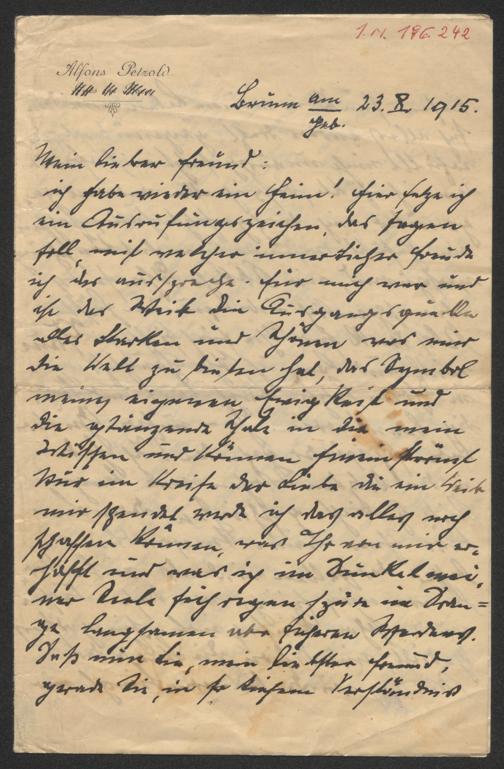 I.N. 196.242
Alfons Petzold
Brunn am Geb. 23. X. 1915.
Mein lieber Freund:
ich habe wieder ein Heim! Hier setze ich
ein Ausrufungszeichen, das sagen
soll, mit welcher innerlicher Freude
ich das ausspreche. Für mich war und
ist das Weib die Ausgangsquelle
alles Starken und Schönen was mir
die Welt zu bieten hat, das Symbol
meiner eigenen Ewigkeit und
die glänzende Schale in die mein
Wissen und Können hineinströmt
Nur im Kreise der Liebe die ein Weib
mir spendet werde ich das alles noch
schaffen können, was Ihr von mir er-
hofft und was ich im Dunkel mei-
ner Seele sich regen spüre im Dran-
ge langsamen aber sicheren Werdens.
Daß nun Sie, mein liebster Freund,
gerade Sie, in so tiefem Verständnis